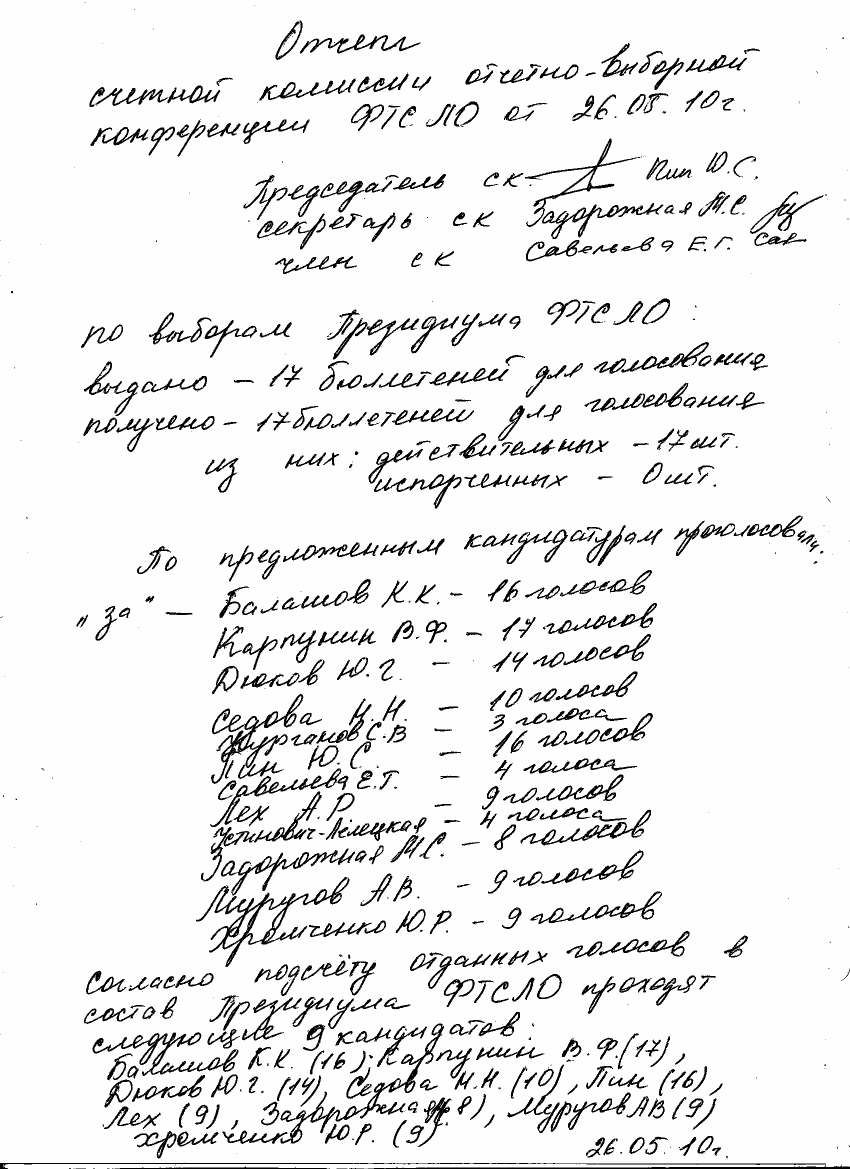 Отчепл
счетной комиссии отчетно-выборной
конференции ФТС ЛО от 26.05.10г.
Председатель ск- Пип Ю.С.
секретарь ск Задорожная М.С.
член ск Савельева Е.Г. Сав
по выборам Президиума ФТС ЛО :
выдано - 17 бюллетеней для голосования
получено - 17 бюллетеней для голосования
из них: действительных - 17 шт.
испорченных - 0 шт.
По предложенным кандидатурам проголосовали:
"за" - Балашов К.К. - 16 голосов
Карпунин В.Ф. - 17 голосов
Дюков Ю.Г. - 14 голосов
Седова Н.Н. - 10 голосов
Журганов С.В - 3 голоса
Пин Ю.С. - 16 голосов
Савельева Е.Г. - 4 голоса
Лех А.Р - 9 голосов
Устинович-Лелецкая - 4 голоса
Задорожная М.С. - 8 голосов
Муругов А.В. - 9 голосов
Хромченко Ю.Р. - 9 голосов
Согласно подсчёту отданных голосов в
состав Президиума ФТСЛО проходят
следующие 9 кандидатов:
Балашов К.К. (16); Карпунин В.Ф. (17),
Дюков Ю.Г. (14), Седова Н.Н. (10), Пин (16),
Лех (9), Задорожная (8), Муругов АВ (9)
Хромченко Ю.Р. (9)
26.05.10г.